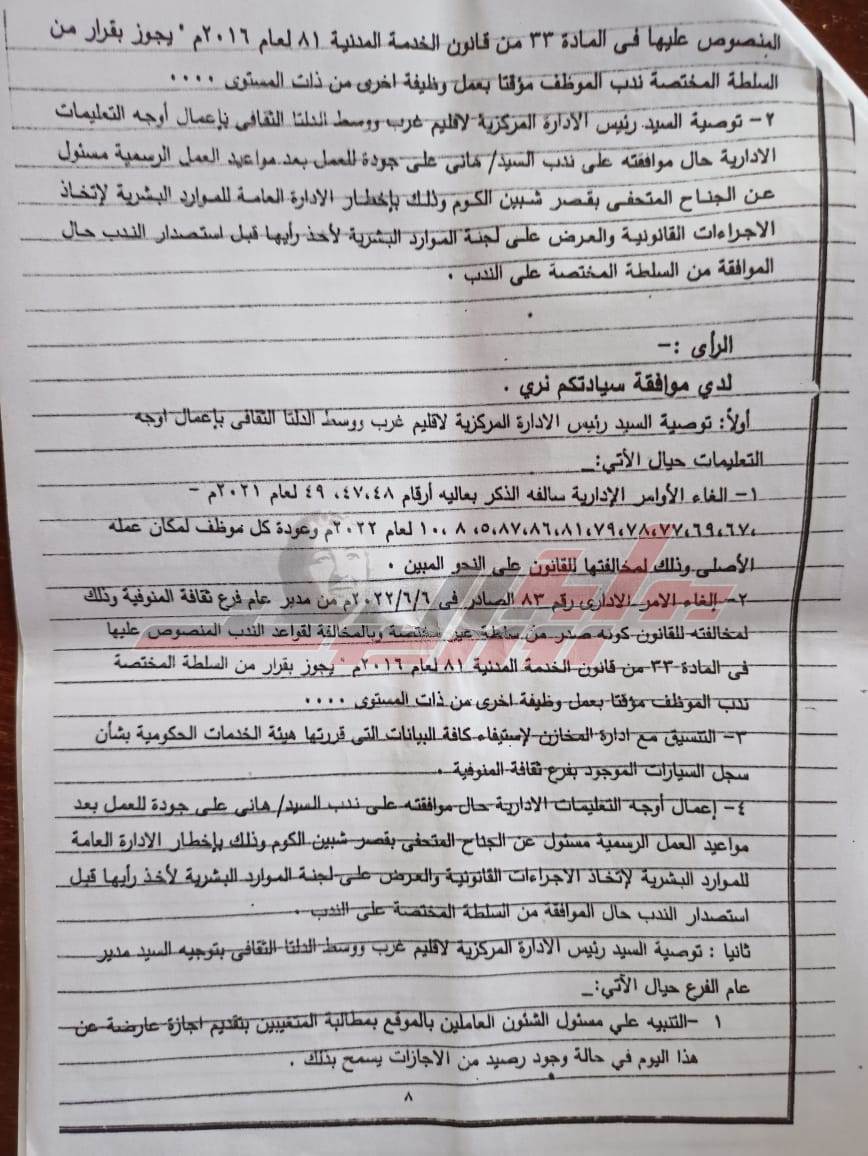 المنصوص عليها فى المادة ٣٣ من قانون الخدمة المدنية ٨١ لعام ٢٠١٦م " يجوز بقرار من
السلطة المختصة ندب الموظف مؤقتا بعمل وظيفة اخرى من ذات المستوى ٠٠٠٠
٢- توصية السيد رئيس الادارة المركزية لاقليم غرب ووسط الدلتا الثقافى بإعمال أوجه التعليمات
الادارية حال موافقته على ندب السيد/ هانى على جودة للعمل بعد مواعيد العمل الرسمية مسئول
عن الجناح المتحفى بقصر شبين الكوم وذلك بإخطار الادارة العامة للموارد البشرية لإتخاذ
الاجراءات القانونية والعرض على لجنة الموارد البشرية لأخذ رأيها قبل استصدار الندب حال
الموافقة من السلطة المختصة على الندب .
الرأى :-
لدي موافقة سيادتكم نري .
أولاً: توصية السيد رئيس الادارة المركزية لاقليم غرب ووسط الدلتا الثقافى بإعمال اوجه
التعليمات حيال الأتي:_
١- الغاء الأوامر الإدارية سالفه الذكر بعاليه أرقام ٤٧،٤٨، ٤٩ لعام ٢٠٢١م -
،٦٧،٦٩،٧٧،٧٨،٧٩،٨١،٨٦،٨٧،٥، ٨، ١٠ لعام ٢٠٢٢م وعودة كل موظف لمكان عمله
الأصلى وذلك لمخالفتها للقانون على النحو المبين .
٢- إلغاء الامر الادارى رقم ٨٣ الصادر فى ٢٠٢٢/٦/٦م من مدير عام فرع ثقافة المنوفية وذلك
لمخالفته للقانون كونه صدر من سلطة غير مختصة وبالمخالفة لقواعد الندب المنصوص عليها
فى المادة ٣٣ من قانون الخدمة المدنية ٨١ لعام ٢٠١٦م " يجوز بقرار من السلطة المختصة
ندب الموظف مؤقتا بعمل وظيفة اخرى من ذات المستوى ٠٠٠٠
٣- التنسيق مع ادارة المخازن لإستيفاء كافة البيانات التى قررتها هيئة الخدمات الحكومية بشأن
سجل السيارات الموجود بفرع ثقافة المنوفية .
٤- إعمال أوجه التعليمات الادارية حال موافقته على ندب السيد/ هانى على جودة للعمل بعد
مواعيد العمل الرسمية مسئول عن الجناح المتحفى بقصر شبين الكوم وذلك بإخطار الادارة العامة
للموارد البشرية لإتخاذ الاجراءات القانونية والعرض على لجنة الموارد البشرية لأخذ رأيها قبل
استصدار الندب حال الموافقة من السلطة المختصة على الندب .
ثانيا : توصية السيد رئيس الادارة المركزية لاقليم غرب ووسط الدلتا الثقافى بتوجيه السيد مدير
عام الفرع حيال الأتي:_
١ -التنبيه علي مسئول الشئون العاملين بالموقع بمطالبة المتغيبين بتقديم اجازة عارضة عن
هذا اليوم في حالة وجود رصيد من الاجازات يسمح بذلك .
٨